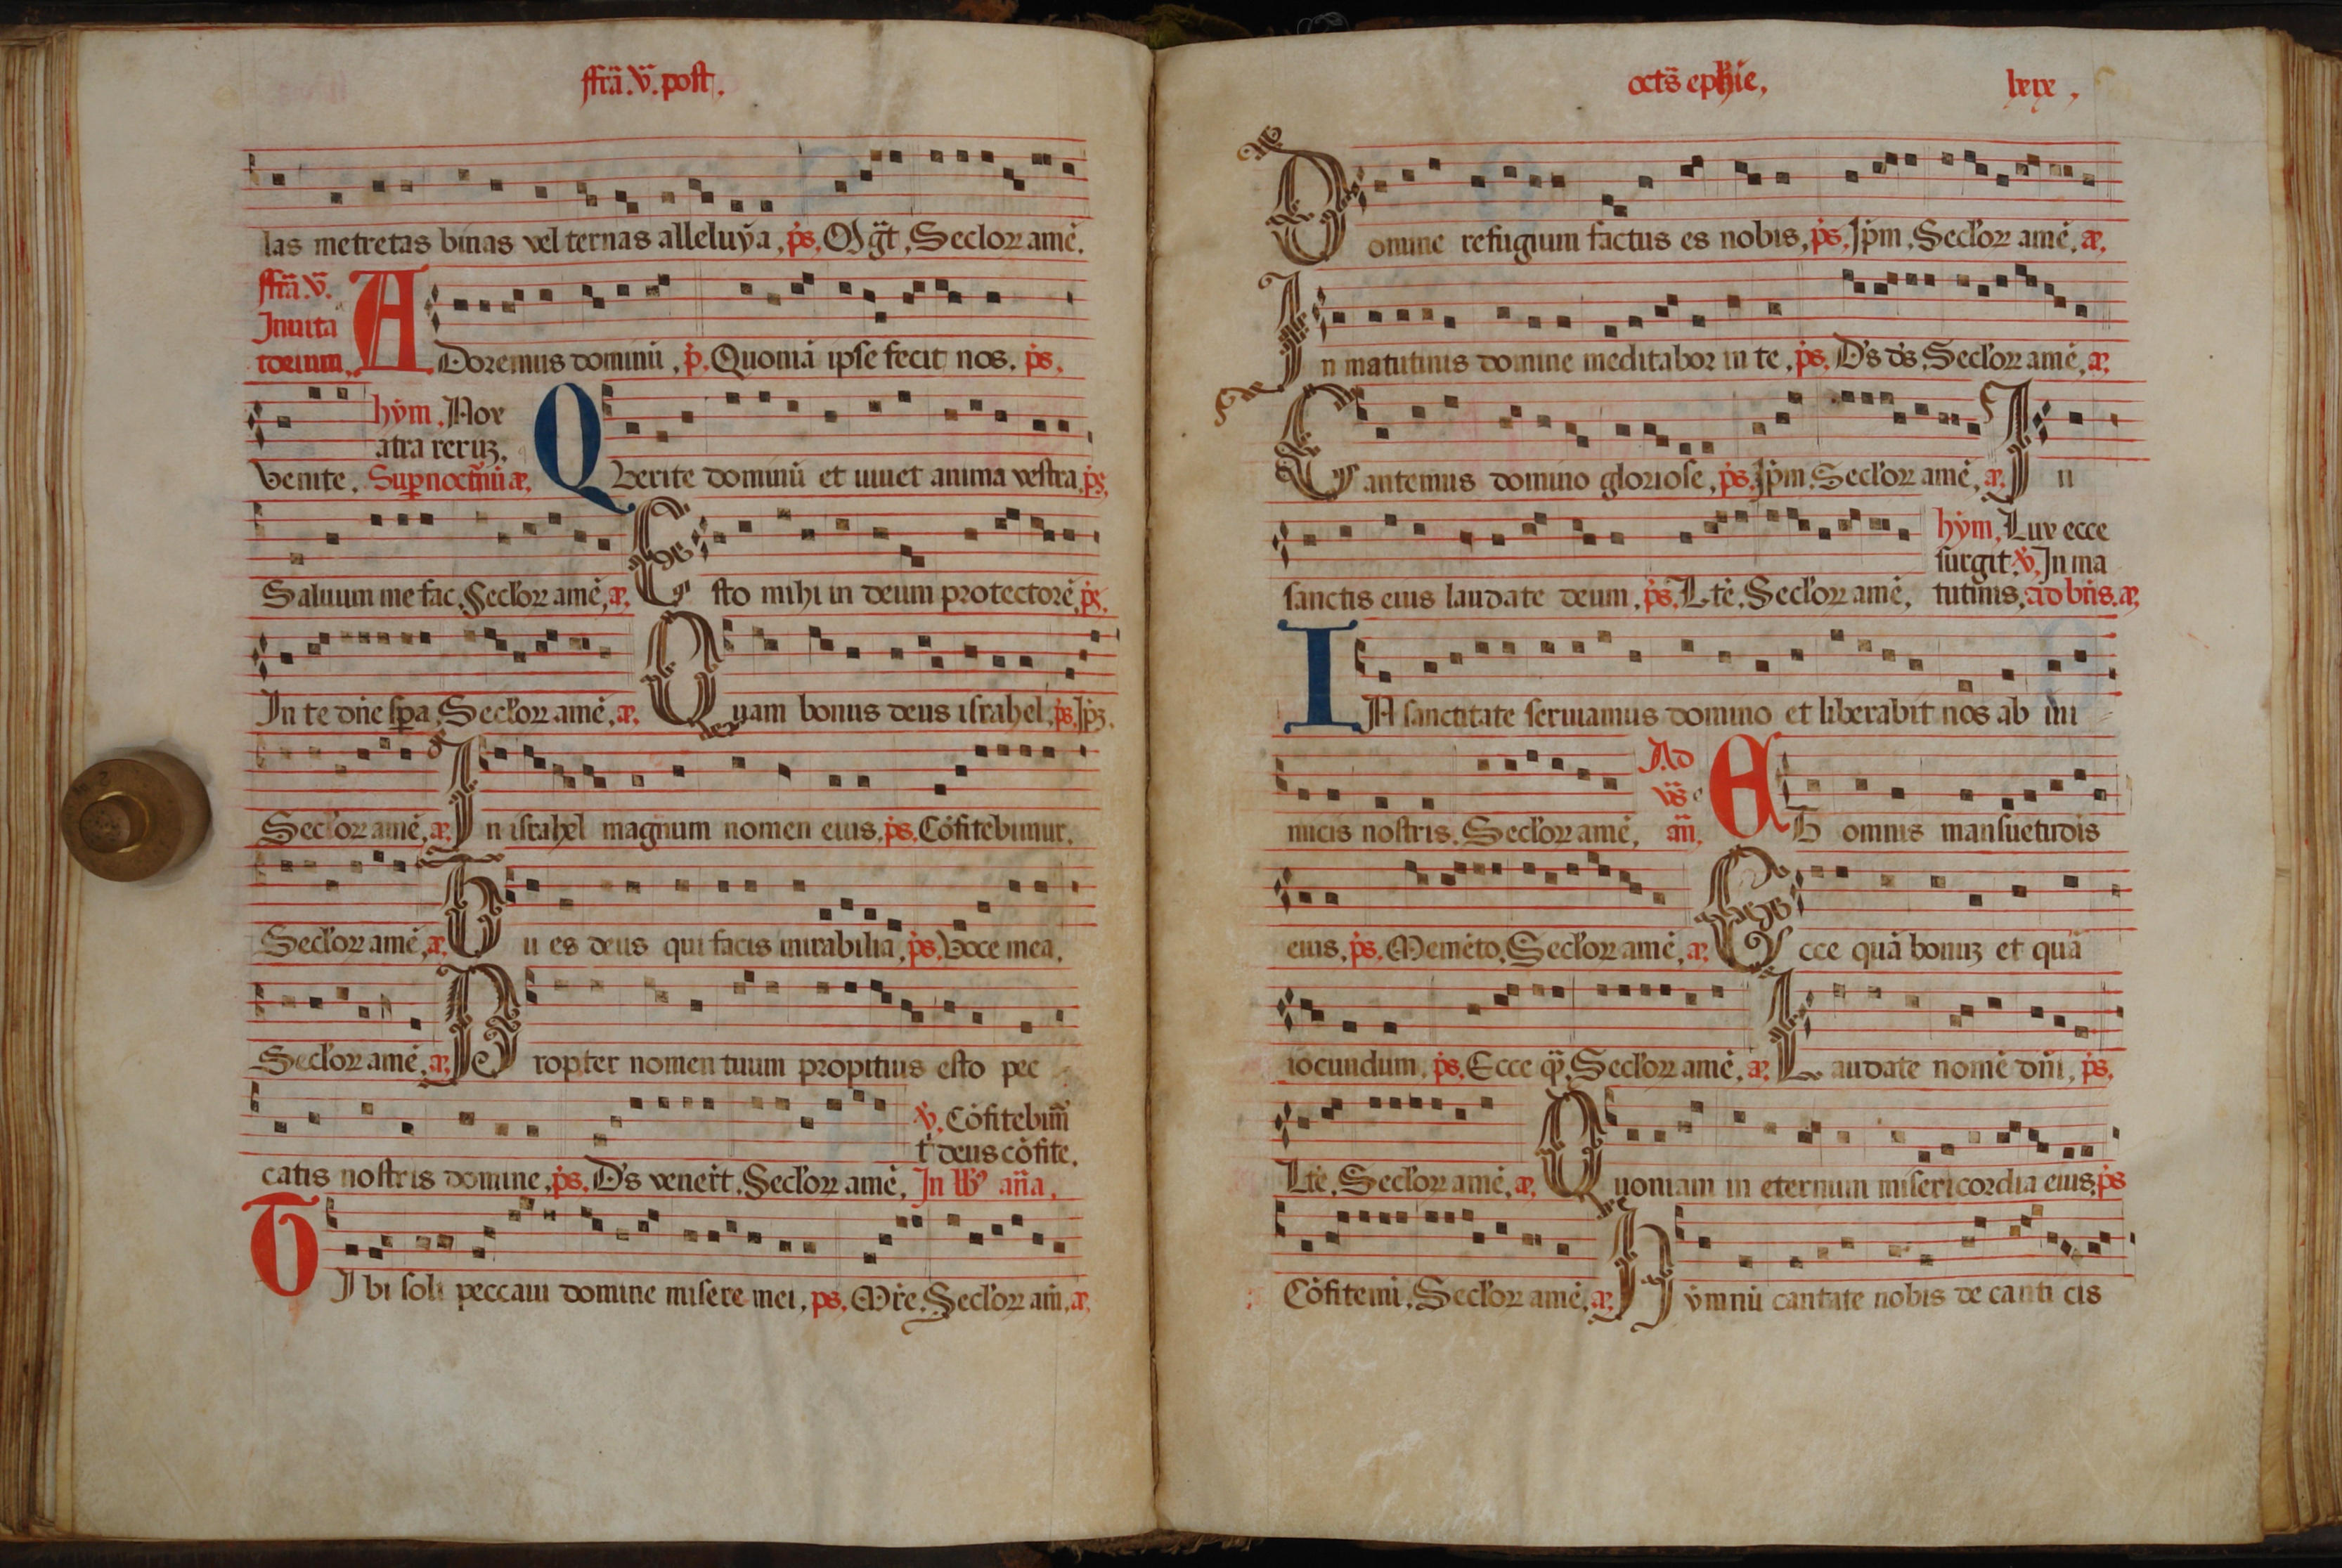 ffrã.v̄.post.
las metretas binas vel ternas alleluẏa, p̄s, Mḡt, Seclorꝝ amē.
ffrã.v̄.
Inuita
torium,
ADoremus dominū, p̄. Quoniā ipse fecit nos. p̄s.
hẏm, Nox
atra rerūꝫ.
Venite. Sup noctūrnū æ,
QVerite dominū et uiuet anima vestra, p̄s,
Saluum me fac, Seclorꝝ amē, æ,
Esto mihi in deum protectorē, p̄s,
In te dn̄e spa, Seclorꝝ amē, æ,
Quam bonus deus israhel, p̄s, Ip̄ꝫ.
Seclorꝝ amē, æ,
In israhel magnum nomen eius, p̄s, Cōfitebimur.
Seclorꝝ amē, æ,
Tu es deus qui facis mirabilia, p̄s, Voce mea.
Seclorꝝ amē, æ,
Propter nomen tuum propitius esto pec
v̄, Cōfitebim̄
t deus cōfite.
catis nostris domine, p̄s, D's venert̄. Seclorꝝ amē, In lb̄ꝰ añа,
TIbi soli peccaui domine misere mei, p̄s, Mr̄e, Seclorꝝ am̄, æ,
octs̄ ephīe,
lxix,
Domine refugium factus es nobis, p̄s, Ip̄m, Seclorꝝ amē, æ,
In matutinis domine meditabor in te, p̄s, D's d's, Seclorꝝ amē, æ,
Cantemus domino gloriose, p̄s, Ip̄m, Seclorꝝ amē, æ, In
hẏm, Lux ecce
surgit v̄, In ma
sanctis eius laudate deum, p̄s, Ltē, Seclorꝝ amē, tutinis, ad bn̄s. æ,
IN sanctitate seruiamus domino et liberabit nos ab ini
Ad
vs̄
micis nostris. Seclorꝝ amē, añ,
Et omnis mansuetudis
eius, p̄s, Memēto, Seclorꝝ amē, æ,
Ecce quā bonuꝫ et quā
iocundum, p̄s, Ecce q̄, Seclorꝝ amē, æ,
Laudate nomē dn̄i, p̄s,
Ltē, Seclorꝝ amē, æ,
Quoniam in eternum misericordia eius, p̄s
Cōfitemi, Seclorꝝ amē, æ,
Hẏmnū cantate nobis de canti cis